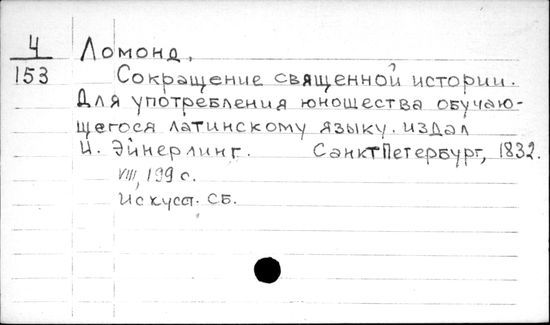 4
153
Ломонд.
Сокращение священной истории.
Для употребления юношества обучаю-
щегося латинскому языку. издал
И. Эйнерлинг. СанктПетербург, 1832.
VIII, 199 с.
Искусст. сб.